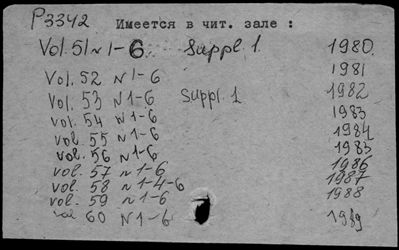 P3342 Имеется в чит. зале :
Vol. 51 N 1-6 Suppl 1. 1980.
Vol. 52 N 1-6 1981
Vol. 53 N 1-6 Suppl. 1 1982
Vol. 54 N 1-6 1983
Vol. 55 N 1-6 1984
Vol. 56 N 1-6 1983
Vol. 57 N 1-6 1986
Vol. 58 N 1-4-6 1987
Vol. 59 N 1-6 1988
Vol 60 N 1-6 1989